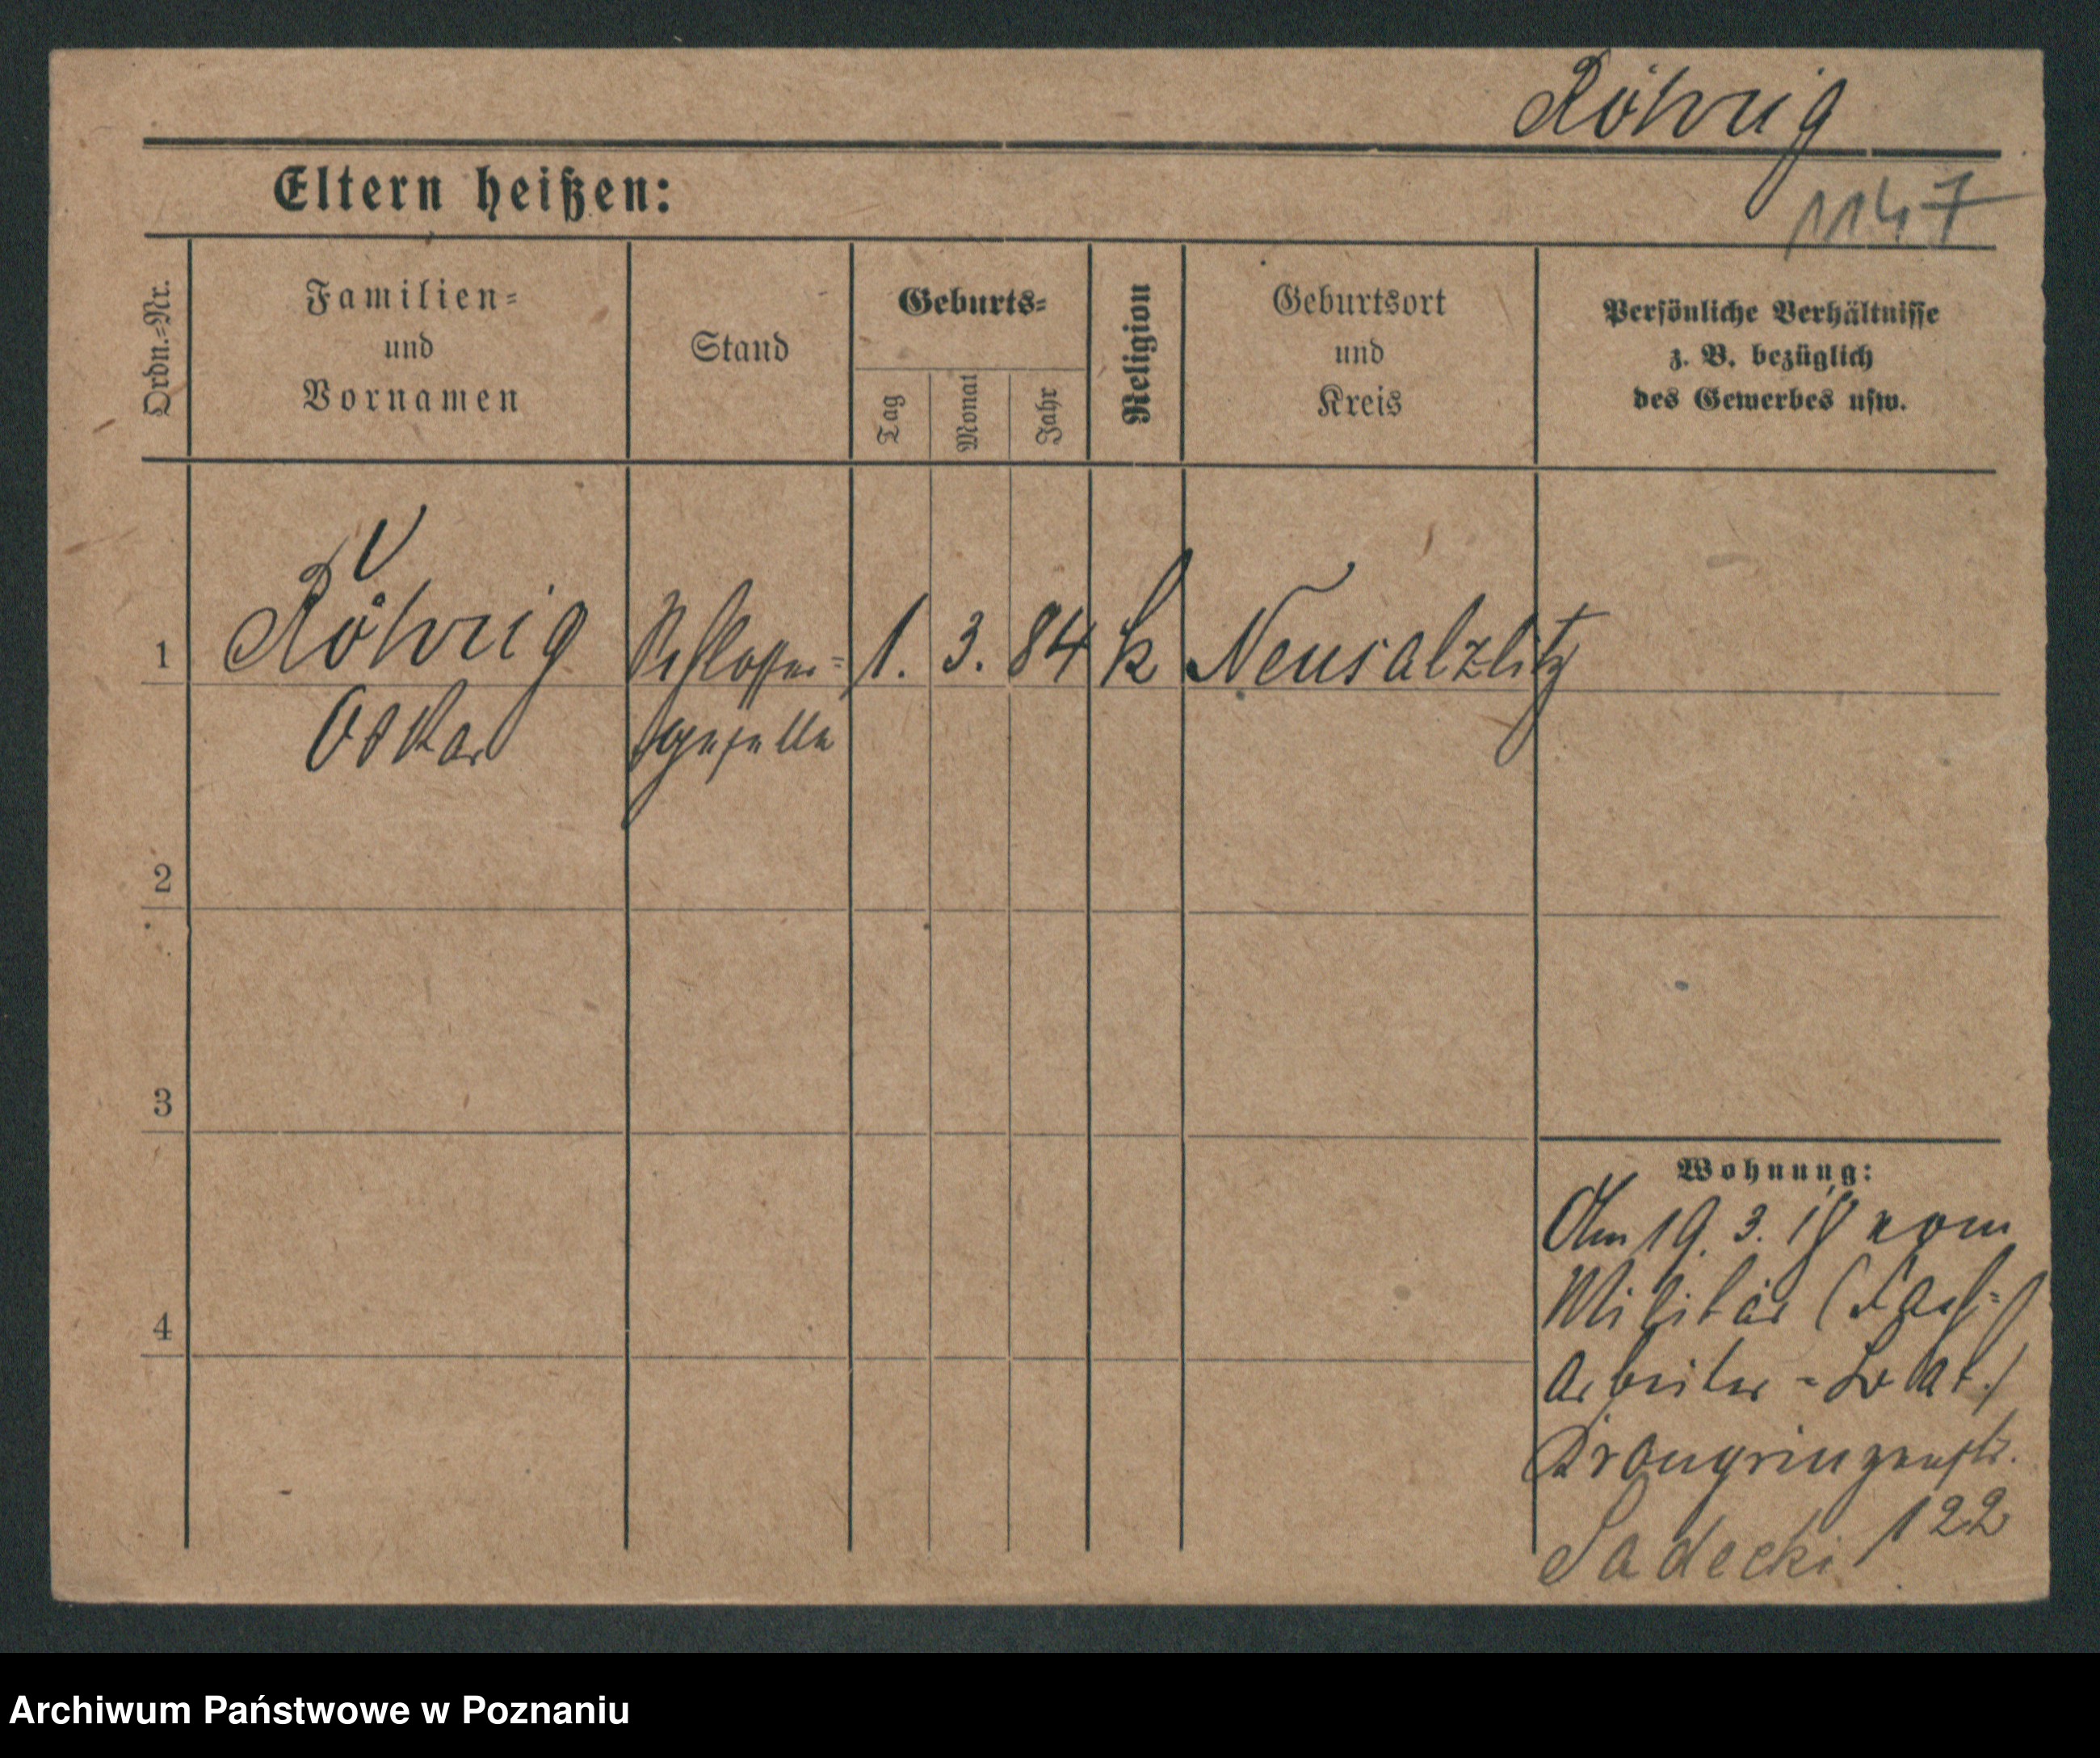 Röhrig
1147
Eltern heißen:
Ordn.=Nr.
Familien=
und
Vornamen
Stand
Geburts=
Tag
Monat
Jahr
Religion
Geburtsort
und
Kreis
Persönliche Verhältnisse
z. B. bezüglich
des Gewerbes usw.
1 Röhrig Schlosser= 1. 3. 84 k Neusalzlitz
Oskar geselle
2
3
4
Wohnung:
Am 19. 3. 18 vom
Militär (Fach=
arbeiter=
Kronprinzenstr.
122
Sadecki
Archiwum Państwowe w Poznaniu